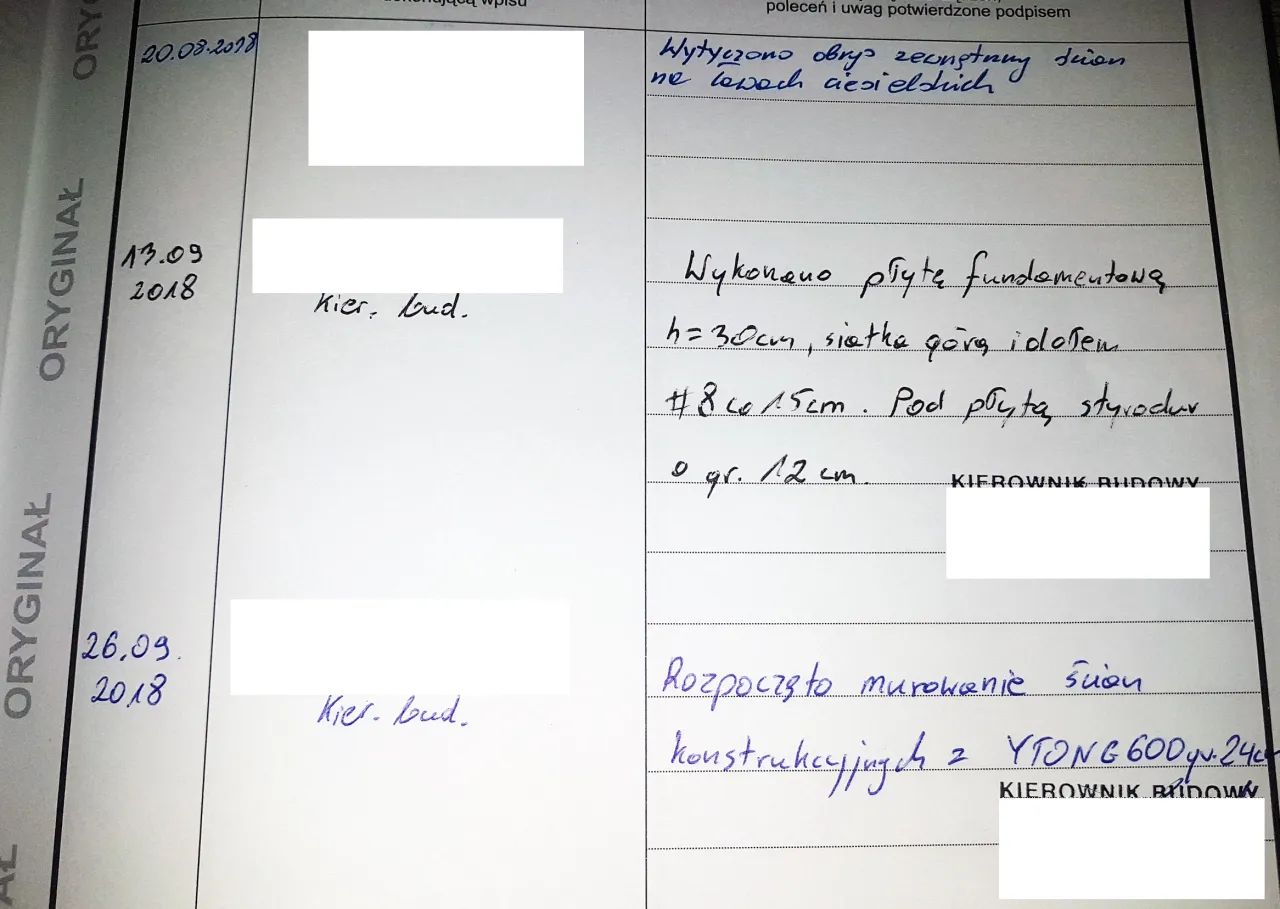 dokonującą wpisu
poleceń i uwag potwierdzone podpisem
ORYGINAŁ
ORYGINAŁ
20.08.2018
Wytyczono obrys zewnętrzny ścian
na ławach ciesielskich
13.09
2018
Kier. bud.
Wykonano płytę fundamentową
h=30cm, siatka górą i dołem
#8 co 15cm. Pod płytą styrodur
o gr. 12 cm.
KIEROWNIK BUDOWY
26.09.
2018
Kier. bud.
Rozpoczęto murowanie ścian
konstrukcyjnych z YTONG 600 gr. 24cm
KIEROWNIK BUDOWY